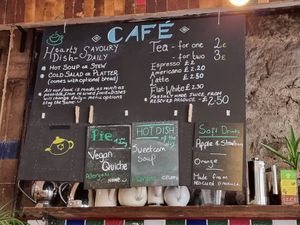 CAFÉ
Hearty SAVOURY
Dish - DAILY
• HOT SOUP or STEW
• COLD SALAD or PLATTER
(comes with optional bread)
All our food is made, as much as
possible, from rescued food - dishes
will change daily - menu options
stay the same
Tea - for one 2£
for two 3£
Espresso £2
Americano £2.20
Latte £2.50
Flat White £2.50
JUICE FROM
RESCUED PRODUCE - £2.50
Pie
Vegan
Quiche
Allergens:
HOT DISH
of the day
Sweetcorn
Soup
Allergens: CELERY
Soft Drinks
Apple &
Orange
Made from
rescued produce